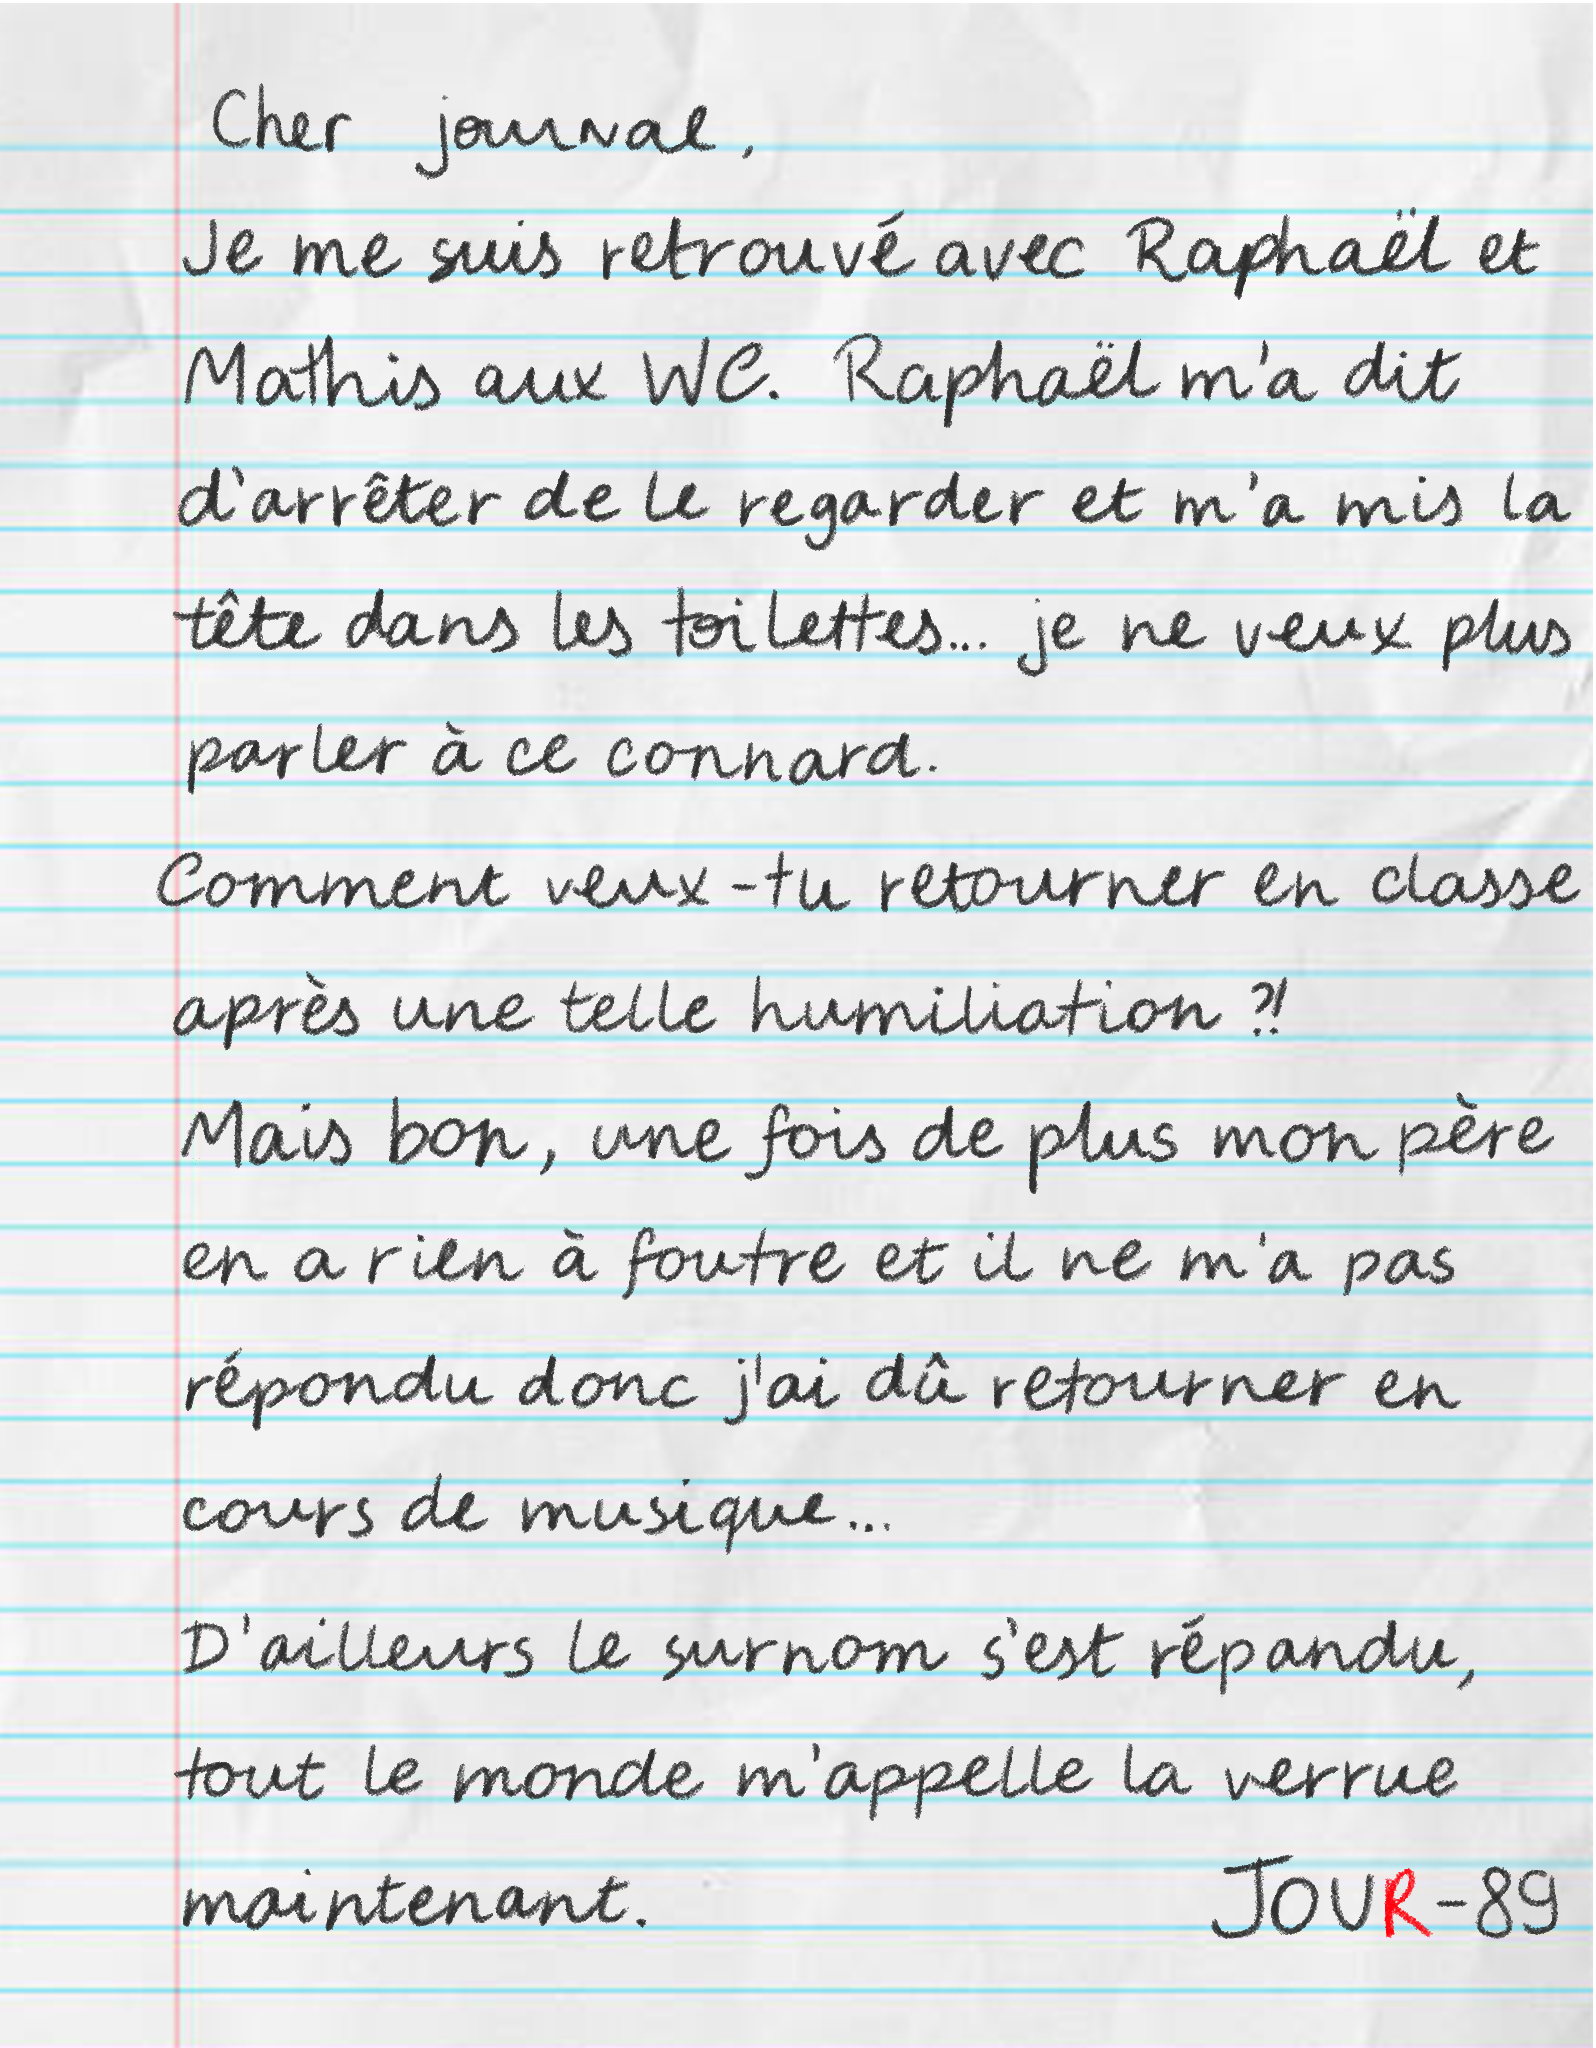 Cher journal,
Je me suis retrouvé avec Raphaël et
Mathis aux WC. Raphaël m'a dit
d'arrêter de le regarder et m'a mis la
tête dans les toilettes... je ne veux plus
parler à ce connard.
Comment veux-tu retourner en classe
après une telle humiliation ?!
Mais bon, une fois de plus mon père
en a rien à foutre et il ne m'a pas
répondu donc j'ai dû retourner en
cours de musique...
D'ailleurs le surnom s'est répandu,
tout le monde m'appelle la verrue
maintenant.
JOUR-89